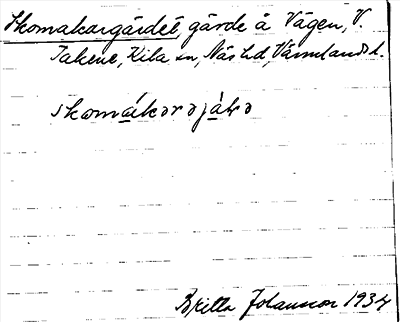 Skomakargärdet, gärde å Vägen, V.
Takene, Kila sn, Näs hd, Värmland s l.
skomákərə jálə
Britta Johansson 1934